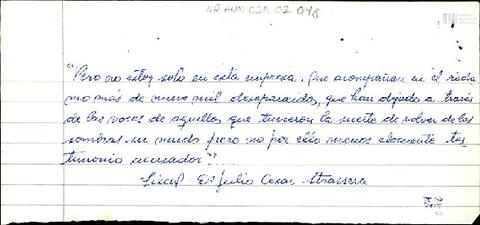 AR AUM CSR 02 048
"Pero no estoy solo en esta empresa. Me acompañan en el recla
mo más de nueve mil desaparecidos, que han dejado a través
de las voces de aquellos que tuvieron la suerte de volver de las
sombras su mudo pero no por ello menos elocuente tes
timonio acusador"...
Fiscal Dr Julio Cesar Strassera